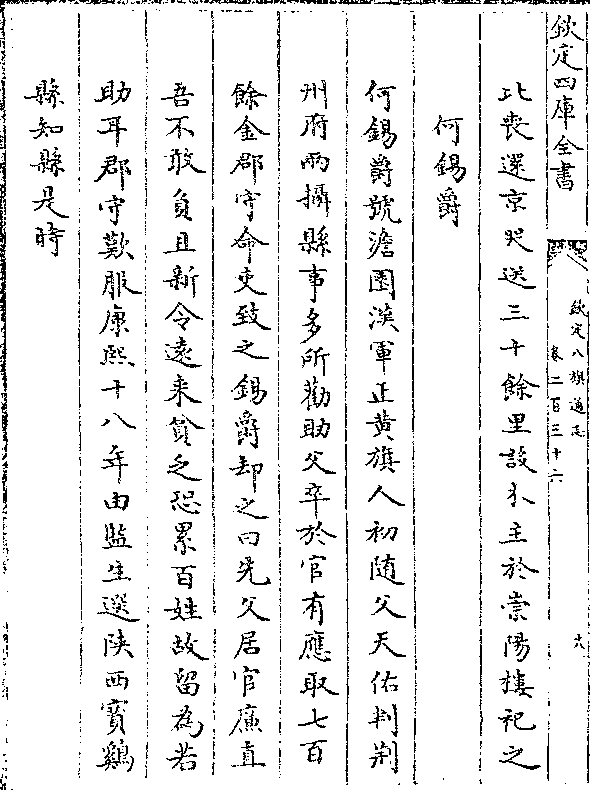 欽定四庫全書
欽定八旗通志
卷二百三十六
十八
比喪還京哭送三千餘里設木主於崇陽樓祀之
何錫爵
何錫爵號澹園漢軍正黄旗人初随父天佑判荆
州府兩攝縣事多所勸助父卒於官有應取七百
餘金郡守命吏致之錫爵却之曰先父居官廉直
吾不敢負且新令遠来貧乏恐累百姓故留為若
助耳郡守歎服康熙十八年由監生選陜西寳鷄
縣知縣是時